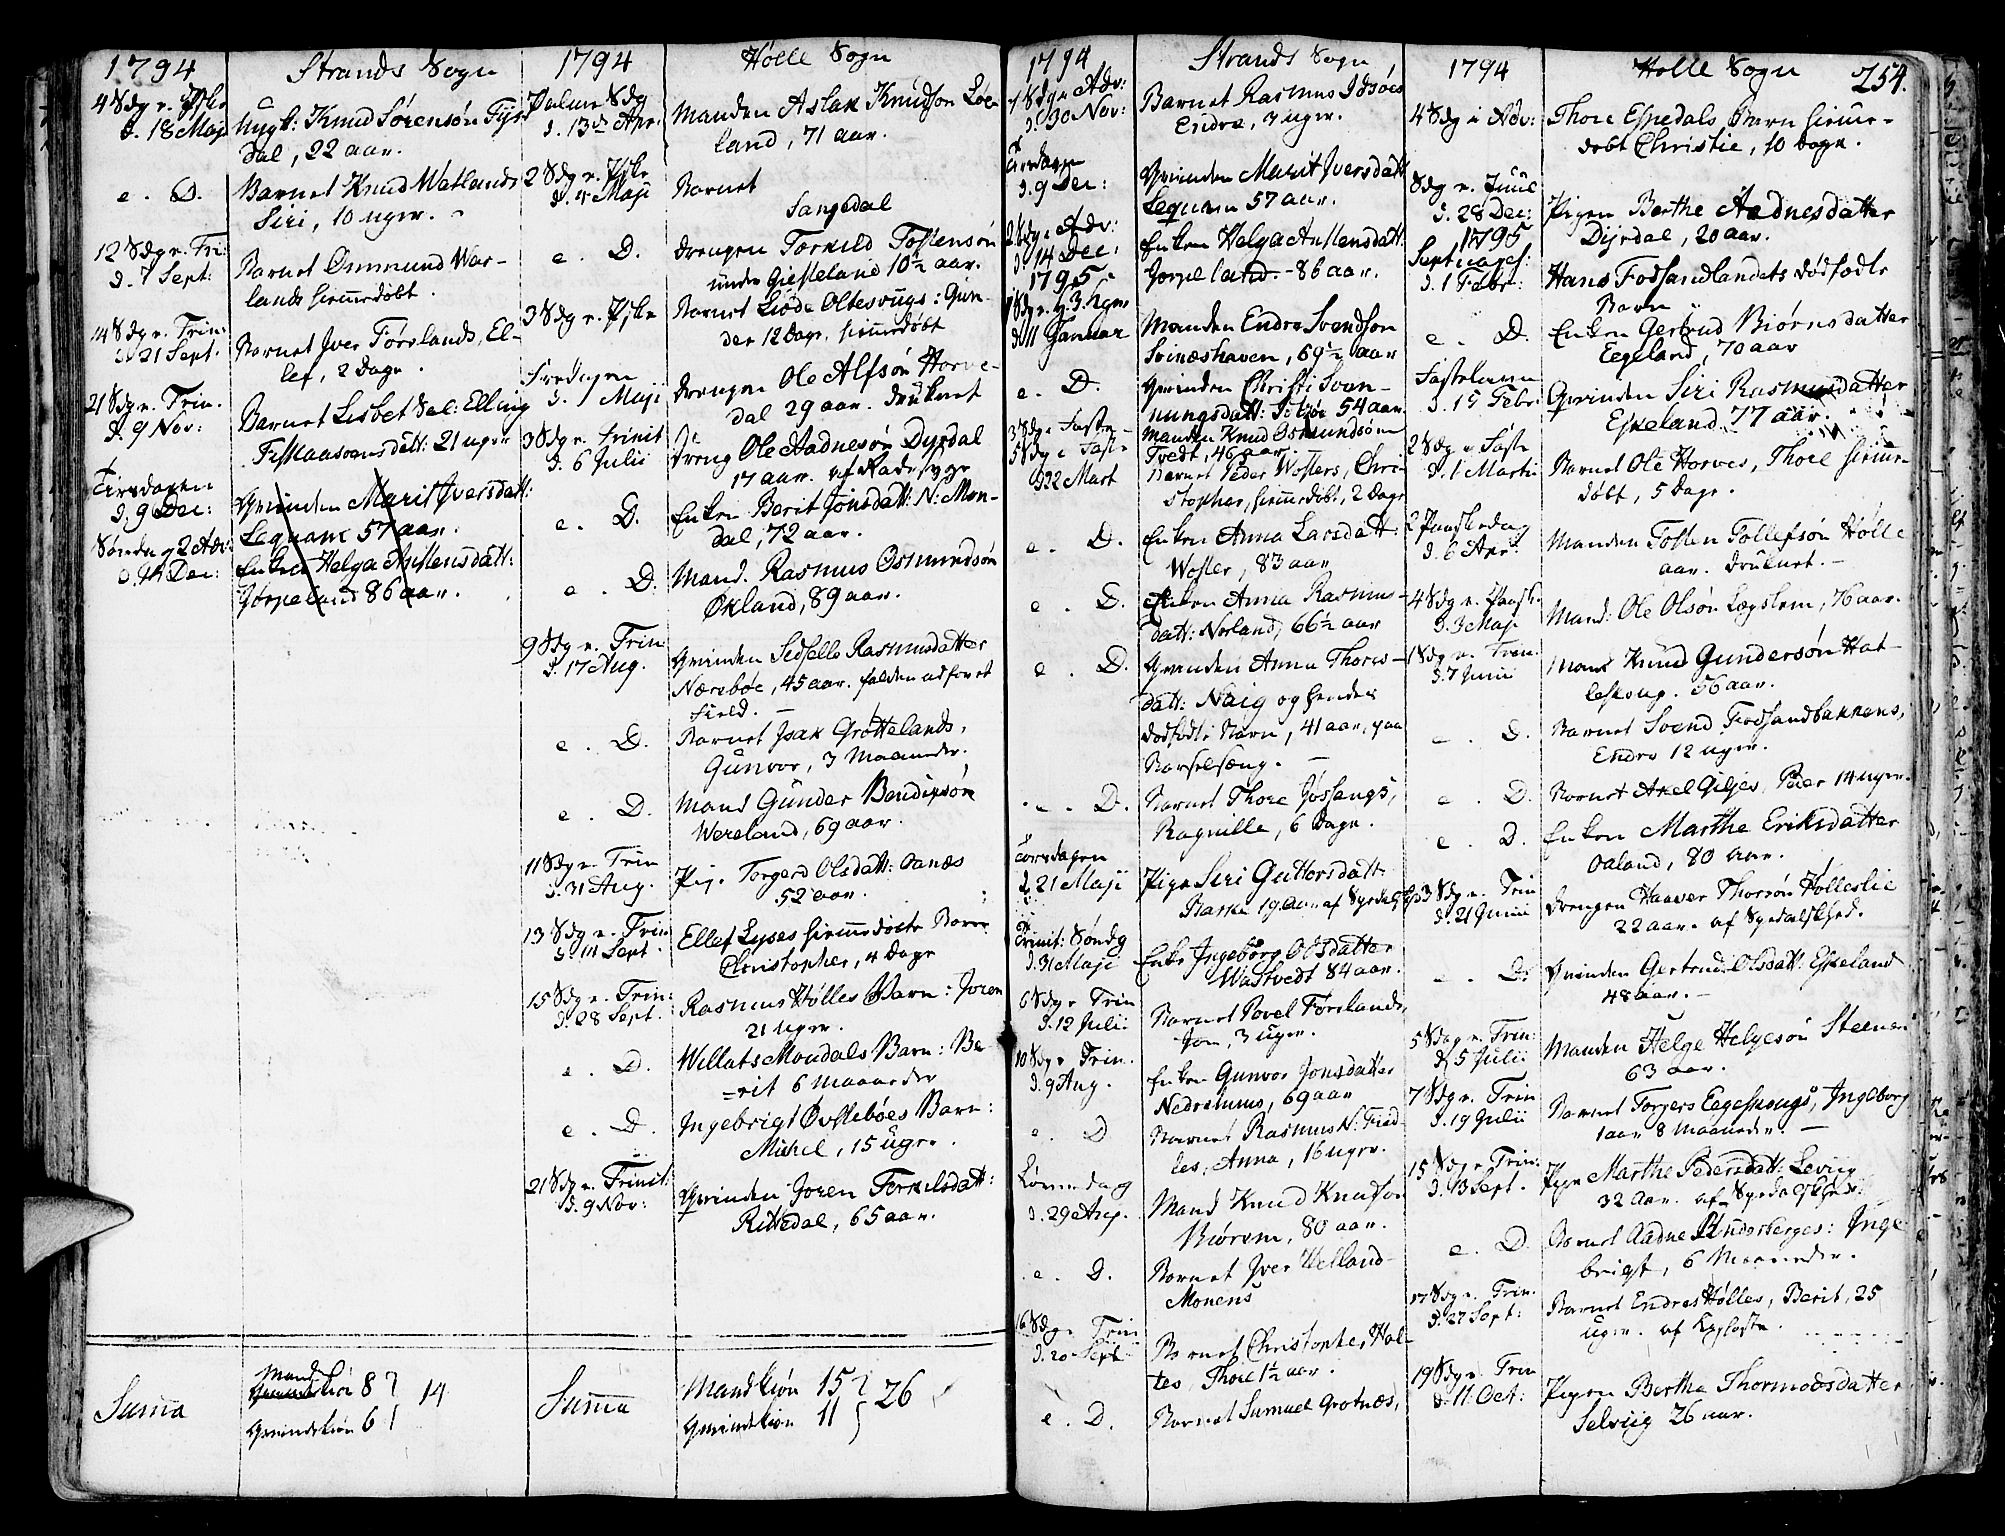 1794
Strands Sogn
4 Sdg e. Pske
d. 18 Maji
Ungk: Knud Sørensøn Fijs-
dal, 22 aar.
e. D.
Barnet Knud Watlands
Siri, 10 uger.
12 Sdg e. Tri:
d. 7 Sept:
Barnet Osmund War-
lands hiemedøbt.
14 Sdg e. Trin:
d. 21 Sept.
Barnet Iver Førelands, El-
lef, 2 Dage.
21 Sdg e. Trin.
d. 9 Nov:
Barnet Lisbet Sal: Elling
Fiskaaevensdatt: 21 uger
Tirsdagen
d. 9 Dec:
Qvinden Marit Iversdatt:
Lequam 57 aar.
Søndag 2 Adv:
d. 14 Dec:
Enken Helga Austensdatt:
Jørpeland 86 aar.
Summa
Mand
kiøn 8
Qvindekiøn 6
14
1794
Hølle Sogn
Palme Sdg
d. 13de Apr.
Manden Aslak Knudsøn Løe-
land, 71 aar.
2 Sdg e. Pske
d. 4 Maji
Barnet
Sangedal
e. D.
Drengen Torkild Tostensøn
under Giesteland 10½ aar.
3 Sdg e. Pske
Barnet Lisde Oltesvigs: Gun-
der 12 Dage, hiemedøbt
Fredagen
d. 1 Maji
Drengen Ole Alfsøn Horve-
dal 29 aar. druknet
3 Sdg e. Trinit
d. 6 Julii
Dreng Ole Aadnesøn Dyrdal
17 aar. af Radesyge
e. D.
Enken Berit Jonsdatt: N: Mon-
dal, 72 aar.
e. D.
Mand. Rasmus Osmundsøn
Økland, 89 aar.
9 Sdg e. Trin
d. 17 Aug.
Qvinden Sidselle Rasmusdatter
Nærebøe, 45 aar. falden ud for et
field.
e. D.
Barnet Isak Grøttelands,
Gunvor, 3 Maaneder.
e. D.
Mand Gunder Bendixsøn
Wereland, 69 aar.
11 Sdg e. Trin
d. 31 Aug.
Pig. Torgerd Olsdatt: Oanæs
52 aar.
13 Sdg e. Trin
d. 14 Sept.
Ellef Lyses hiemedøbte Barn
Christopher, 4 Dage
15 Sdg e. Trin:
d. 28 Sept.
Rasmus Hølles Barn: Joren
21 uger.
e. D.
Willats Mondals Barn: Be-
=rit 6 Maaneder
e. D.
Ingebrigt Øvstebøes Barn:
Mickel, 15 uger.
21 Sdg e. Trinit:
d. 9 Nov:
Qvinden Joren Torkelsdatt:
Rettedal, 65 aar.
Summa
Mandkiøn 15
Qvindekiøn 11
26
1794
Strands Sogn
1 Sdg e Adv:
d. 30 Nov:
Barnet Rasmus Idsøes
Endre, 3 uger.
Tirsdagen
d. 9 Dec:
Qvinden Marit Iversdatt
Lequam 57 aar.
3 Sdg e Adv:
d. 14 Dec:
Enken Helga Austensdatt:
Jørpeland 86 aar.
1795
1 Sdg e. H. 3 Kgers
d. 11 Januar
Manden Endre Svendson
Svineshaven, 69½ aar
e. D.
Qvinden Christi Svan-
nungsdatt: Idsøe 54 aar.
3 Sdg e Faste
Manden Knud Osmundsøn
Tvedt, 46 aar
5 Sdg e Faste
d. 22 Mart
Barnet Peder Wosters, Chri-
stopher, hiemedøbt, 2 Dage
e. D.
Enken Anna Larsdatt:
Woster, 83 aar
e. D.
Enken Anna Rasmus-
datt: Norland, 66½ aar
e. D.
Qvinden Anna Thores-
datt: Naig og hendes
dødfødte Barn, 41 aar, paa
Barselseng.
e. D.
Barnet Thore Jøssangs,
Ragnille, 6 Dage.
Torsdagen
d. 21 Maji
Pige Siri Guttorsdatt
Barke 19 aar
Trinit: Søndg
d. 31 Maji
Enke Ingeborg Olsdatter
Wastvedt 84 aar.
6 Sdg e Trin
d. 12 Julii
Barnet Povel Førelands,
Jon, 3 uger.
10 Sdg e. Trin.
d. 9 Aug.
Enken Gunvor Jonsdatter
Nedremus, 69 aar
e. D
Barnet Rasmus N: Tved-
tes, Anna, 16 uger.
Løverdag
d. 29 Aug.
Mand Knud Knudson
Biørem, 80 aar.
e. D.
Barnet Iver Helland-
Monens
16 Sdg e Trin
d. 20 Sept
Barnet Christopher Hol-
tes, Thore 1½ aar.
e. D.
Barnet Samuel Grotnæs,
1794
Hølle Sogn
254.
4 Sdg i Adv:
Thore Espedals Barn hieme-
døbt Christie, 10 Dage.
Sdg e. Juul
d. 28 Dec:
Pigen Berthe Aadnesdatter
Dijrdal, 20 aar.
1795
Septuages:
d. 1 Febr:
Hans Fossandlandets dødfødte
Barn
e. D.
Enken Gertrud Biørnsdatter
Eegeland, 70 aar
Fastelavn
d. 15 Febr:
Qvinden Siri Rasmusdatter
Eskeland 77 aar.
2 Sdg e Faste
d. 1 Martii
Barnet Ole Horves, Thore hieme-
døbt, 5 Dage.
2 Paaskedag
d. 6 Apr.
Manden Tosten Tollefsøn Hølle
aar. druknet.
4 Sdg e. Paask.
d. 3 Maji
Mand: Ole Olsøn Lægstem, 76 aar.
1 Sdg e. Trin.
d. 7 Junii
Mand Knud Gundersøn Hat-
leskong. 56 aar.
e. D.
Barnet Svend Fossandbakkens,
Endre 12 uger.
e. D.
Barnet Axel Giljes, Peder 14 uger.
e. D.
Enken Marthe Eriksdatter
Oaland, 80 aar.
3 Sdg e. Trin
d. 21 Junii
Drengen Haaver Thorsøn Hølleslie
22 aar. af Spedalskhed.
e. D.
Qvinden Gertrud Olsdatt: Eskeland
48 aar.
5 Sdg e. Trin:
d. 5 Julii
Manden Helge Helgesøn Steenen
63 aar.
7 Sdg e. Trin
d. 19 Julii
Barnet Torgers Eegeskongs, Ingeborg
1 aar 8 Maaneder.
15 Sdg e. Trin:
d. 13 Sept.
Pige Marthe Pedersdatt: Leviig
32 aar. af Spedalskhed.
e. D.
Barnet Aadne Bundesberges: Inge-
brigt, 6 Maaneder.
17 Sdg e. Trin.
d. 27 Sept:
Barnet Endres Hølles, Berit, 25
uger. af
19 Sdg e. Trin
d. 11 Oct:
Pigen Bertha Thormodsdatter
Selviig 26 aar.